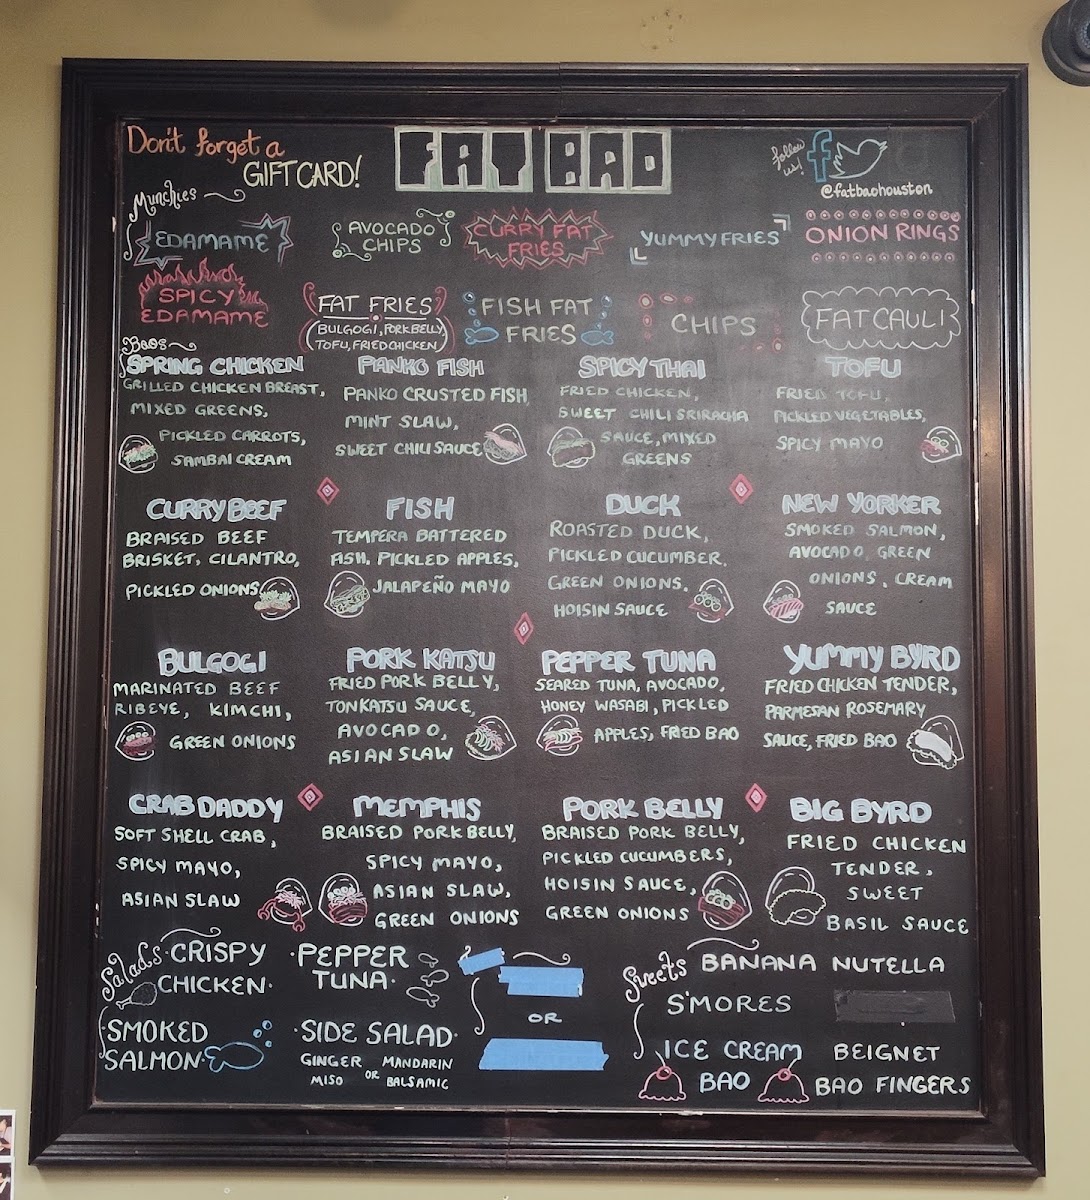 Don't forget a
GIFT CARD!
FAT BAO
follow us!
f
@fatbaohouston
Munchies
EDAMAME
AVOCADO
CHIPS
CURRY FAT
FRIES
YUMMY FRIES
ONION RINGS
SPICY
EDAMAME
FAT FRIES
BULGOGI, PORK BELLY
TOFU, FRIED CHICKEN
FISH FAT
FRIES
CHIPS
FAT CAULI
Baos
SPRING CHICKEN
GRILLED CHICKEN BREAST,
MIXED GREENS,
PICKLED CARROTS,
SAMBAI CREAM
PANKO FISH
PANKO CRUSTED FISH
MINT SLAW,
SWEET CHILI SAUCE
SPICY THAI
FRIED CHICKEN,
SWEET CHILI SRIRACHA
SAUCE, MIXED
GREENS
TOFU
FRIED TOFU,
PICKLED VEGETABLES,
SPICY MAYO
CURRY BEEF
BRAISED BEEF
BRISKET, CILANTRO,
PICKLED ONIONS
FISH
TEMPERA BATTERED
FISH, PICKLED APPLES,
JALAPEÑO MAYO
DUCK
ROASTED DUCK,
PICKLED CUCUMBER,
GREEN ONIONS,
HOISIN SAUCE
NEW YORKER
SMOKED SALMON,
AVOCADO, GREEN
ONIONS, CREAM
SAUCE
BULGOGI
MARINATED BEEF
RIBEYE, KIMCHI,
GREEN ONIONS
PORK KATSU
FRIED PORK BELLY,
TONKATSU SAUCE,
AVOCADO,
ASIAN SLAW
PEPPER TUNA
SEARED TUNA, AVOCADO,
HONEY WASABI, PICKLED
APPLES, FRIED BAO
YUMMY BYRD
FRIED CHICKEN TENDER,
PARMESAN ROSEMARY
SAUCE, FRIED BAO
CRAB DADDY
SOFT SHELL CRAB,
SPICY MAYO,
ASIAN SLAW
MEMPHIS
BRAISED PORK BELLY,
SPICY MAYO,
ASIAN SLAW,
GREEN ONIONS
PORK BELLY
BRAISED PORK BELLY,
PICKLED CUCUMBERS,
HOISIN SAUCE,
GREEN ONIONS
BIG BYRD
FRIED CHICKEN
TENDER,
SWEET
BASIL SAUCE
Salads
·CRISPY
CHICKEN·
·PEPPER
TUNA·
·SMOKED
SALMON·
·SIDE SALAD·
GINGER MISO OR MANDARIN BALSAMIC
OR
Sweets
BANANA NUTELLA
S'MORES
ICE CREAM
BAO
BEIGNET
BAO FINGERS